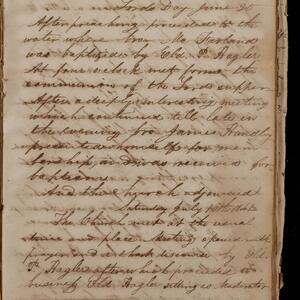 Lords Day June 30
After preaching proceeded to the
water where Bro Mc Farland
was baptised by Eld. P. Hagler
At four oclock met for the
communion of the Lords supper
After a deeply interesting meeting
which continued till late in
the evening Bro James Handly
presented himself for mem
bership and was received for
baptism
And the church adjourned
Saturday July
The Church met at the usual
time and place. Meeting opened with
prayer and a short discourse by Eld
P. Hagler after which proceeded to
business Eld Hagler sitting as moderator